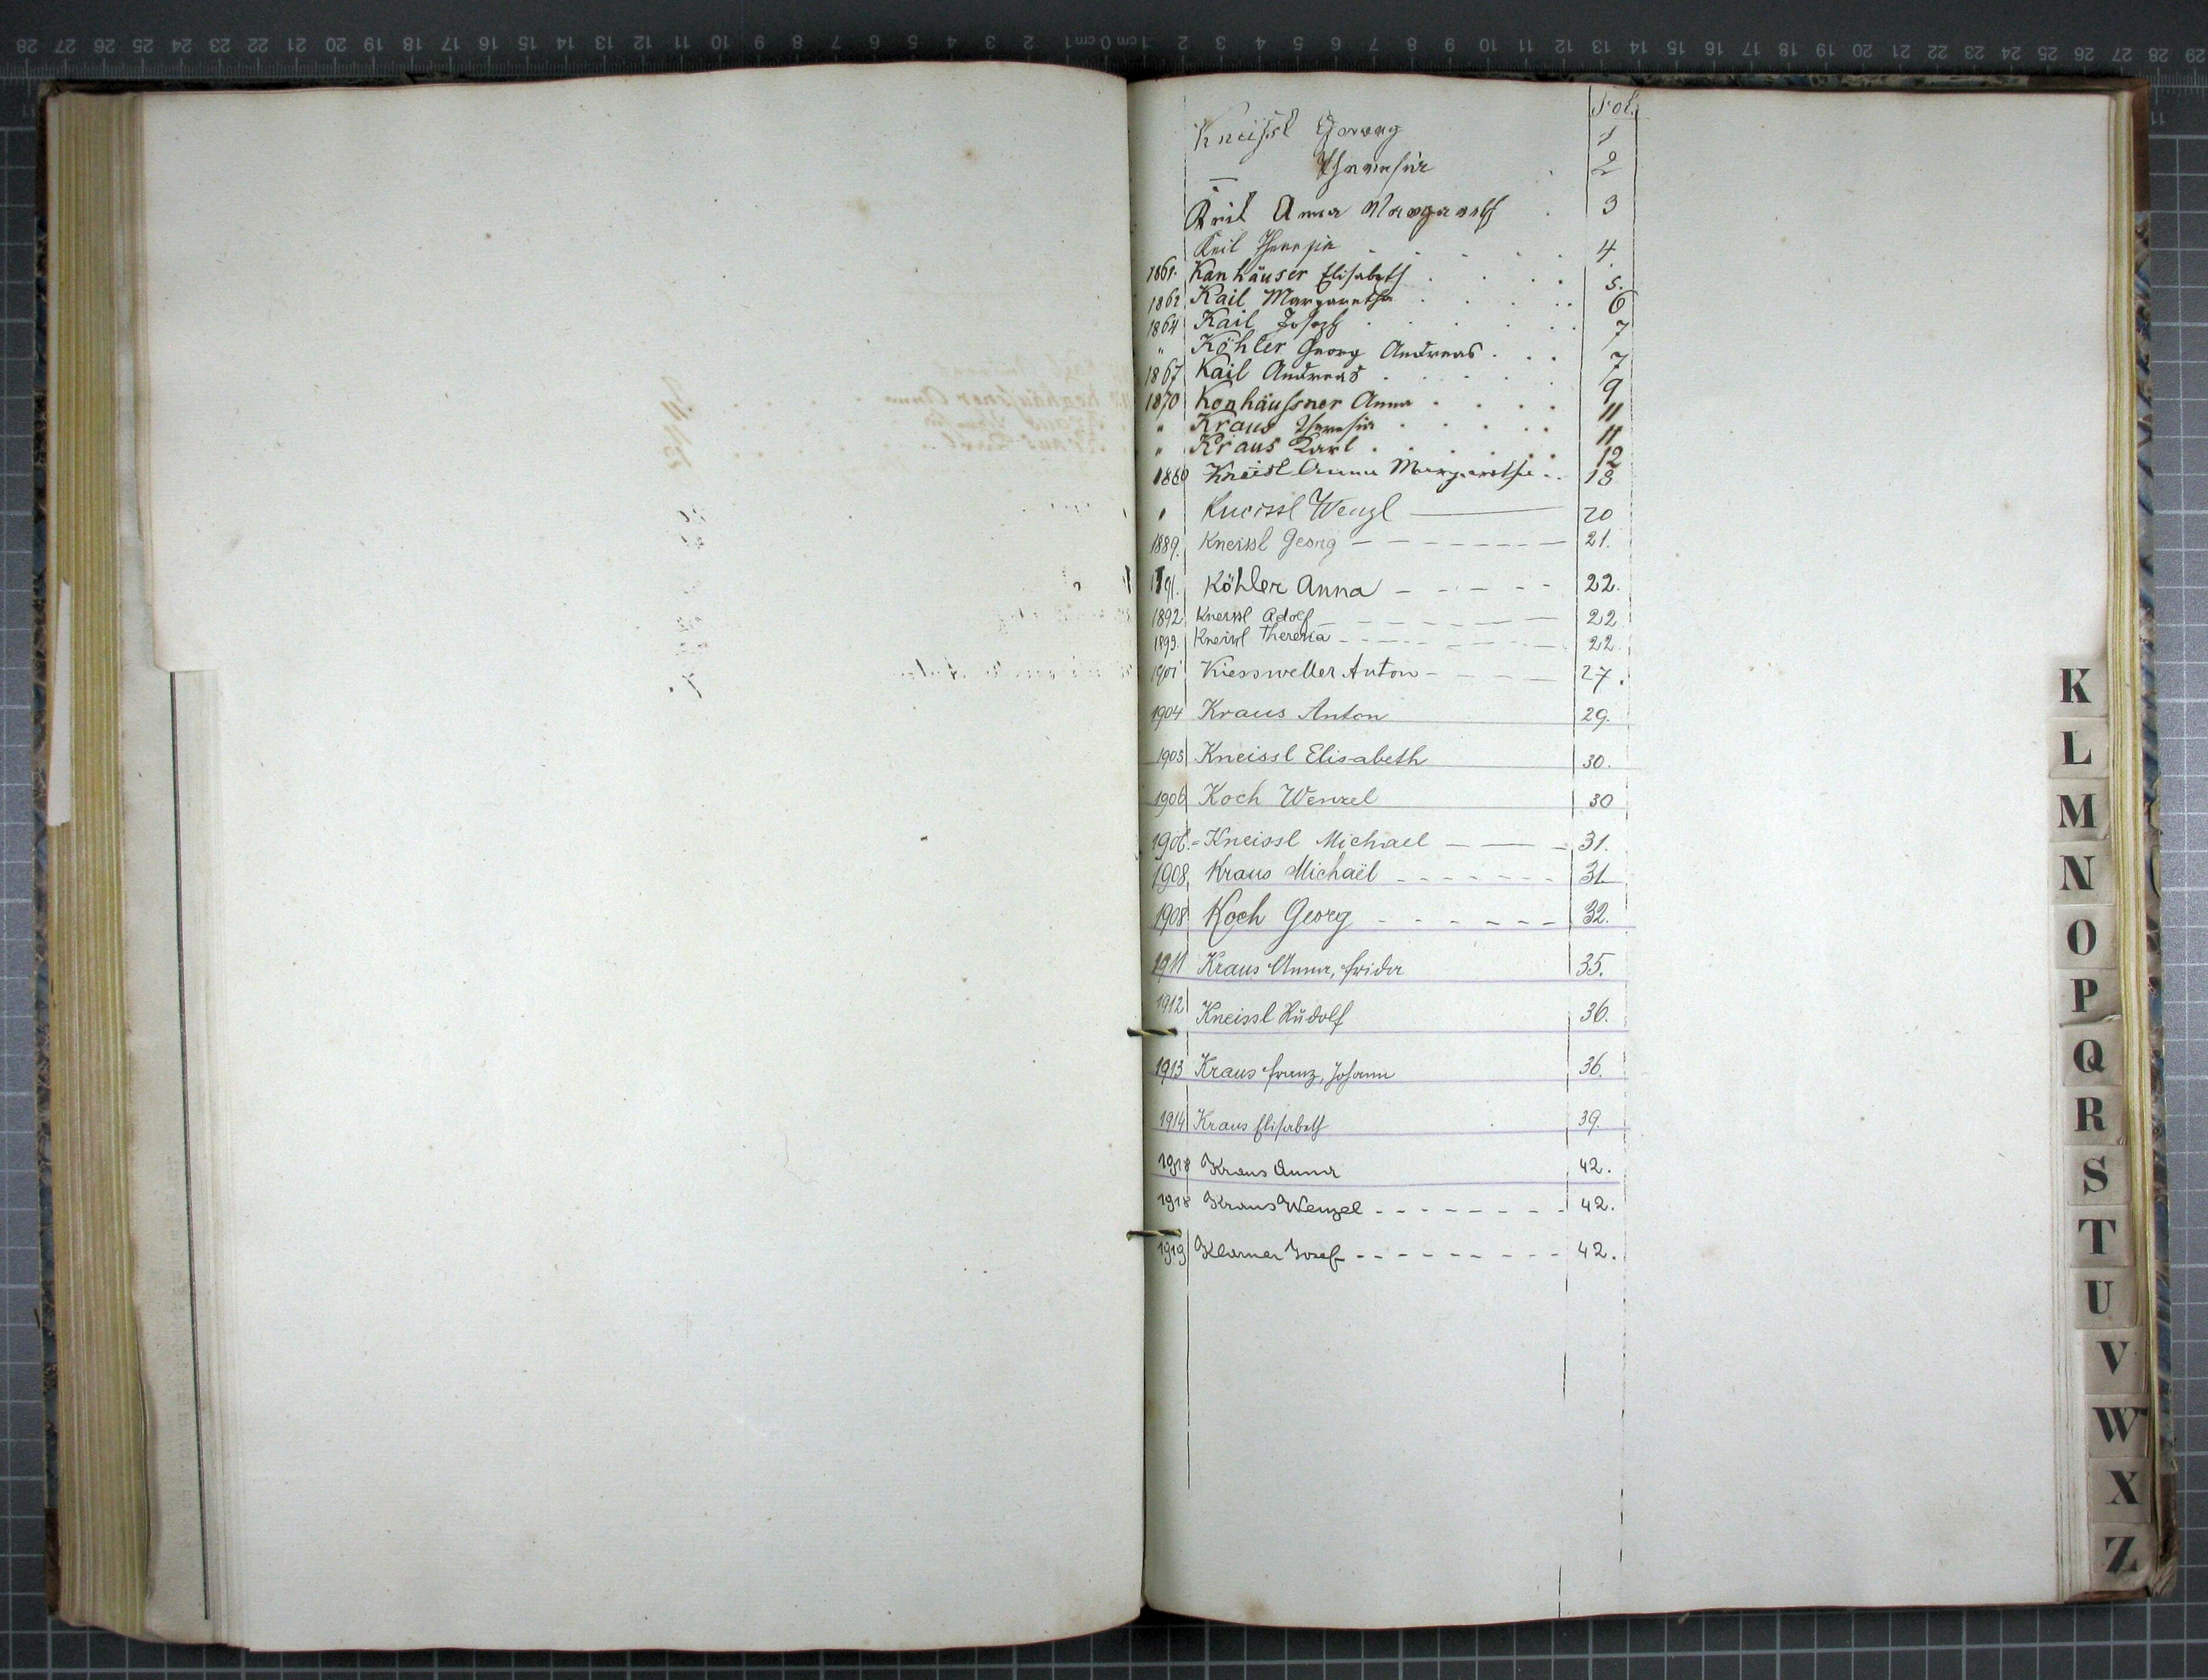 28 27 26 25 24 23 22 21 20 19 18 17 16 15 14 13 12 11 10 9 8 7 6 5 4 3 2 1 cm 0 cm 1 2 3 4 5 6 7 8 9 10 11 12 13 14 15 16 17 18 19 20 21 22 23 24 25 26 27 28 29
Fol.
Kneissl Georg 1
— Theresia . 2
Keil Anna Margareth . 3
Keil Theresia . . . . . 4.
1861. Kanhäuser Elisabeth . . . . 5.
1862 Kail Margaretha . . . . 6
1864 Kail Joseph . . . . . 7
" Köhler Georg Andreas . . . 7
1867 Kail Andreas . . . . . 9
1870 Konhäussner Anna . . . . 11
" Kraus Theresia . . . . . 11
" Kraus Karl . . . . . 12
1880 Kneissl Anna Margaretha . . 18
" Kneissl Wenzl — 20
1889. Kneissl Georg — — — — — — 21.
1891. Köhler Anna — — — — 22.
1892 Kneissl Adolf — — — — — 22
1893. Kneissl Theresia — — — — 22.
1901 Kiessweller Anton — — — — 27.
1904 Kraus Anton 29.
1905 Kneissl Elisabeth 30.
1906 Koch Wenzel 30
1906. - Kneissl Michael — — — 31.
1908, Kraus Michaël - - - - - - - 31
1908 Koch Georg - - - - - - 32.
1911 Kraus Anna, Frida 35.
1912 Kneissl Rudolf 36.
1913 Kraus Franz, Johann 36.
1914 Kraus Elisabeth 39.
1918 Kraus Anna 42.
1918 Kraus Wenzel - - - - - - - - 42.
1919 Klarner Josef - - - - - - - - - 42.
K
L
M
N
O
P
Q
R
S
T
U
V
W
X
Z